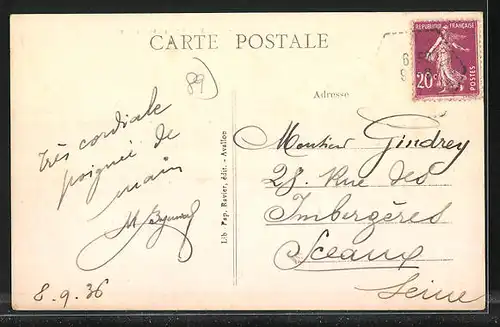 CARTE POSTALE
REPUBLIQUE FRANÇAISE
20c
POSTES
89
Adresse
Très cordiale
poignée de
main
8.9.36
Lib. Pap. Ravier, édit. - Avallon
Monsieur Gindrey
28, Rue des
Imbergères
Sceaux
Seine